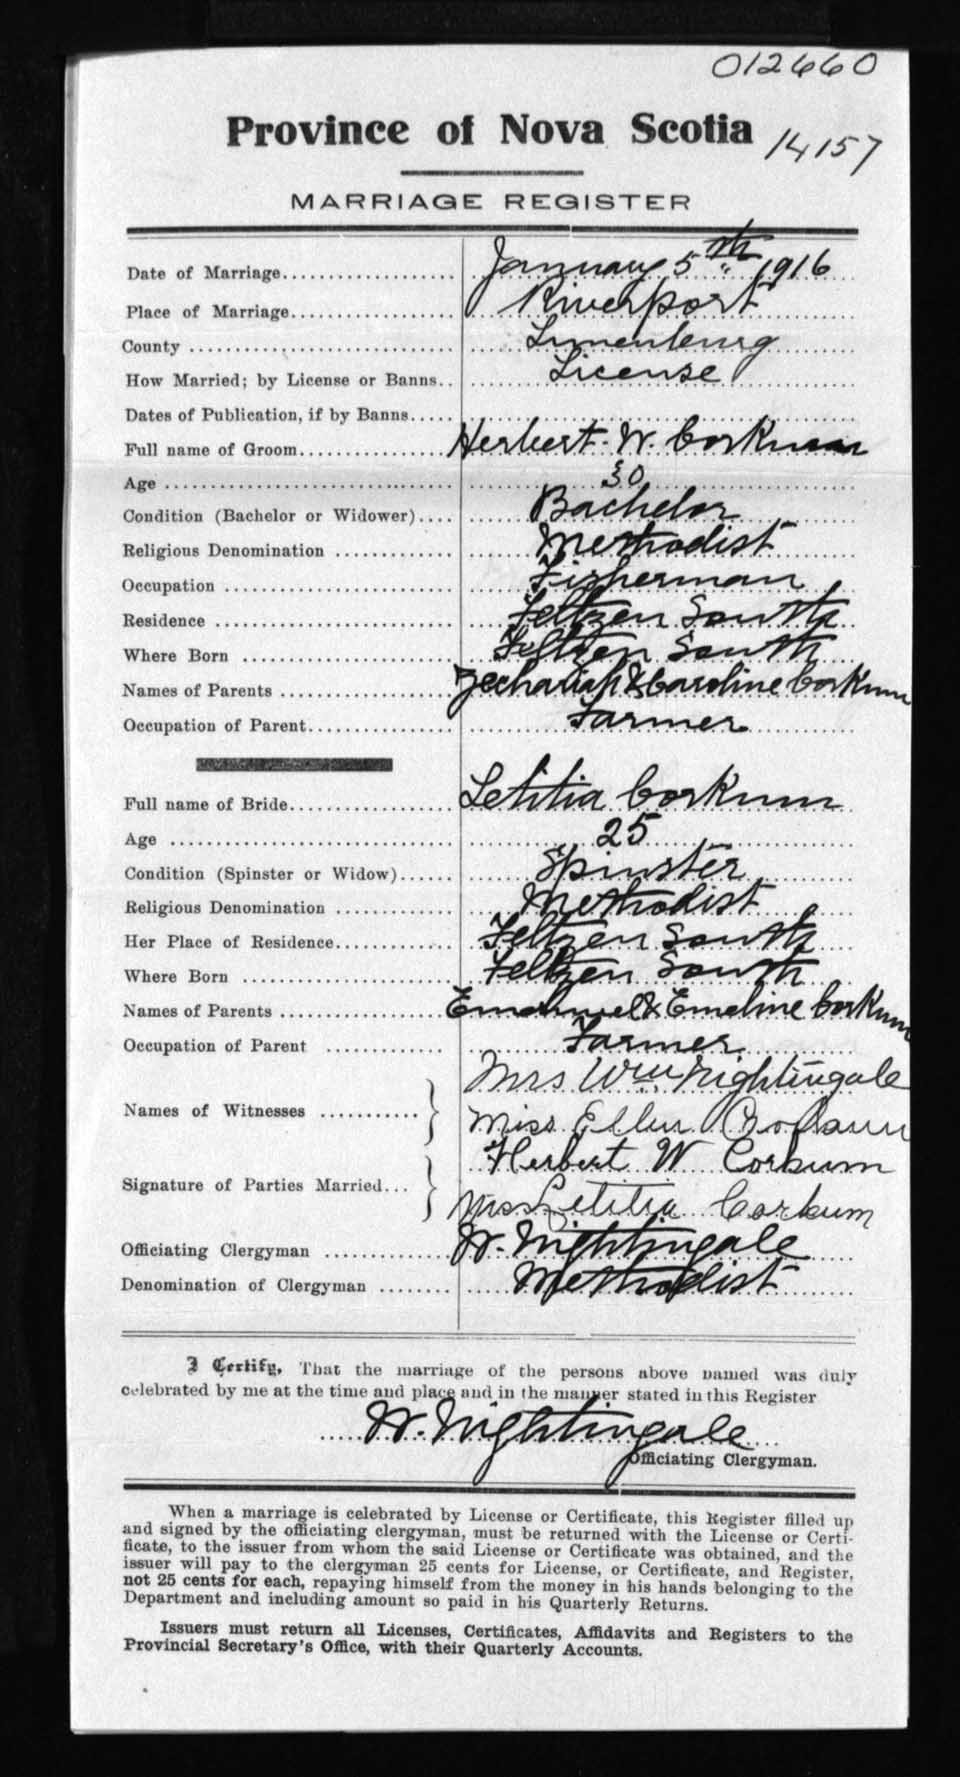 012660
Province of Nova Scotia 14157
MARRIAGE REGISTER
Date of Marriage January 5th 1916
Place of Marriage Riverport
County Lunenburg
How Married; by License or Banns License
Dates of Publication, if by Banns
Full name of Groom Herbert W. Corkum
Age 30
Condition (Bachelor or Widower) Bachelor
Religious Denomination Methodist
Occupation Fisherman
Residence Feltzen South
Where Born Feltzen South
Names of Parents Zechariah & Caroline Corkum
Occupation of Parent Farmer
Full name of Bride Letitia Corkum
Age 25
Condition (Spinster or Widow) Spinster
Religious Denomination Methodist
Her Place of Residence Feltzen South
Where Born Feltzen South
Names of Parents & Emeline Corkum
Occupation of Parent Farmer
Mrs Wm Nightingale
Names of Witnesses
Miss Ellen
Herbert W Corkum
Signature of Parties Married
Miss Letitia Corkum
Officiating Clergyman W. Nightingale
Denomination of Clergyman Methodist
I Certify, That the marriage of the persons above named was duly
celebrated by me at the time and place and in the manner stated in this Register
W. Nightingale
Officiating Clergyman.
When a marriage is celebrated by License or Certificate, this Register filled up
and signed by the officiating clergyman, must be returned with the License or Certi-
ficate, to the issuer from whom the said License or Certificate was obtained, and the
issuer will pay to the clergyman 25 cents for License, or Certificate, and Register,
not 25 cents for each, repaying himself from the money in his hands belonging to the
Department and including amount so paid in his Quarterly Returns.
Issuers must return all Licenses, Certificates, Affidavits and Registers to the
Provincial Secretary's Office, with their Quarterly Accounts.